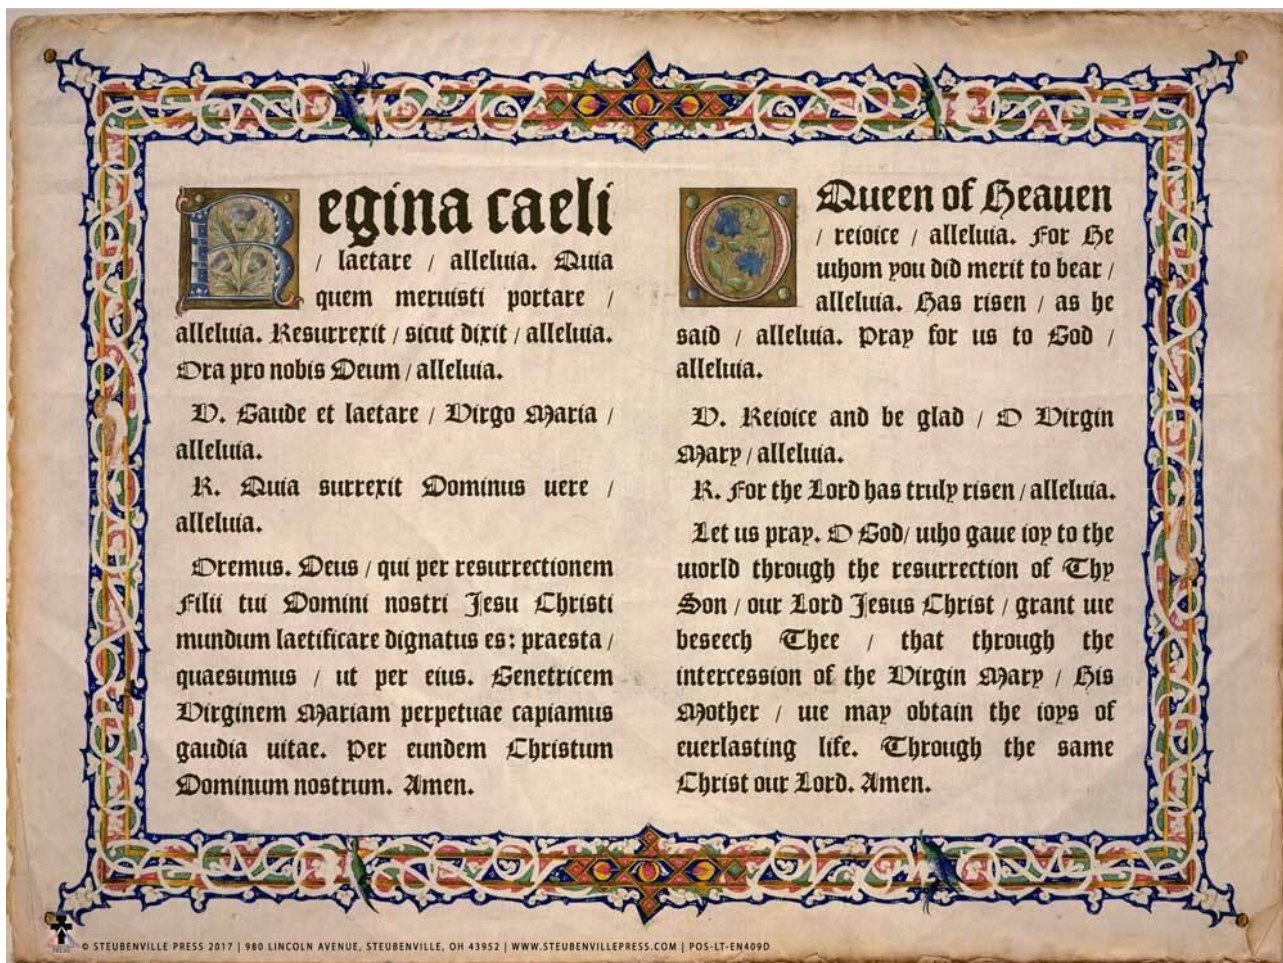 Regina caeli
/ laetare / alleluia. Quia
quem meruisti portare /
alleluia. Resurrexit / sicut dixit / alleluia.
Ora pro nobis Deum / alleluia.
V. Gaude et laetare / Virgo Maria /
alleluia.
R. Quia surrexit Dominus uere /
alleluia.
Oremus. Deus / qui per resurrectionem
Filii tui Domini nostri Jesu Christi
mundum laetificare dignatus es: praesta /
quaesumus / ut per eius. Genetricem
Virginem Mariam perpetuae capiamus
gaudia uitae. Per eundem Christum
Dominum nostrum. Amen.
O Queen of Heauen
/ reioice / alleluia. For He
whom you did merit to bear /
alleluia. Has risen / as he
said / alleluia. Pray for us to God /
alleluia.
V. Reioice and be glad / O Virgin
Mary / alleluia.
R. For the Lord has truly risen / alleluia.
Let us pray. O God/ who gaue ioy to the
world through the resurrection of Thy
Son / our Lord Jesus Christ / grant we
beseech Thee / that through the
intercession of the Virgin Mary / His
Mother / we may obtain the ioys of
euerlasting life. Through the same
Christ our Lord. Amen.
© STEUBENVILLE PRESS 2017 | 980 LINCOLN AVENUE, STEUBENVILLE, OH 43952 | WWW.STEUBENVILLEPRESS.COM | POS-LT-EN409D